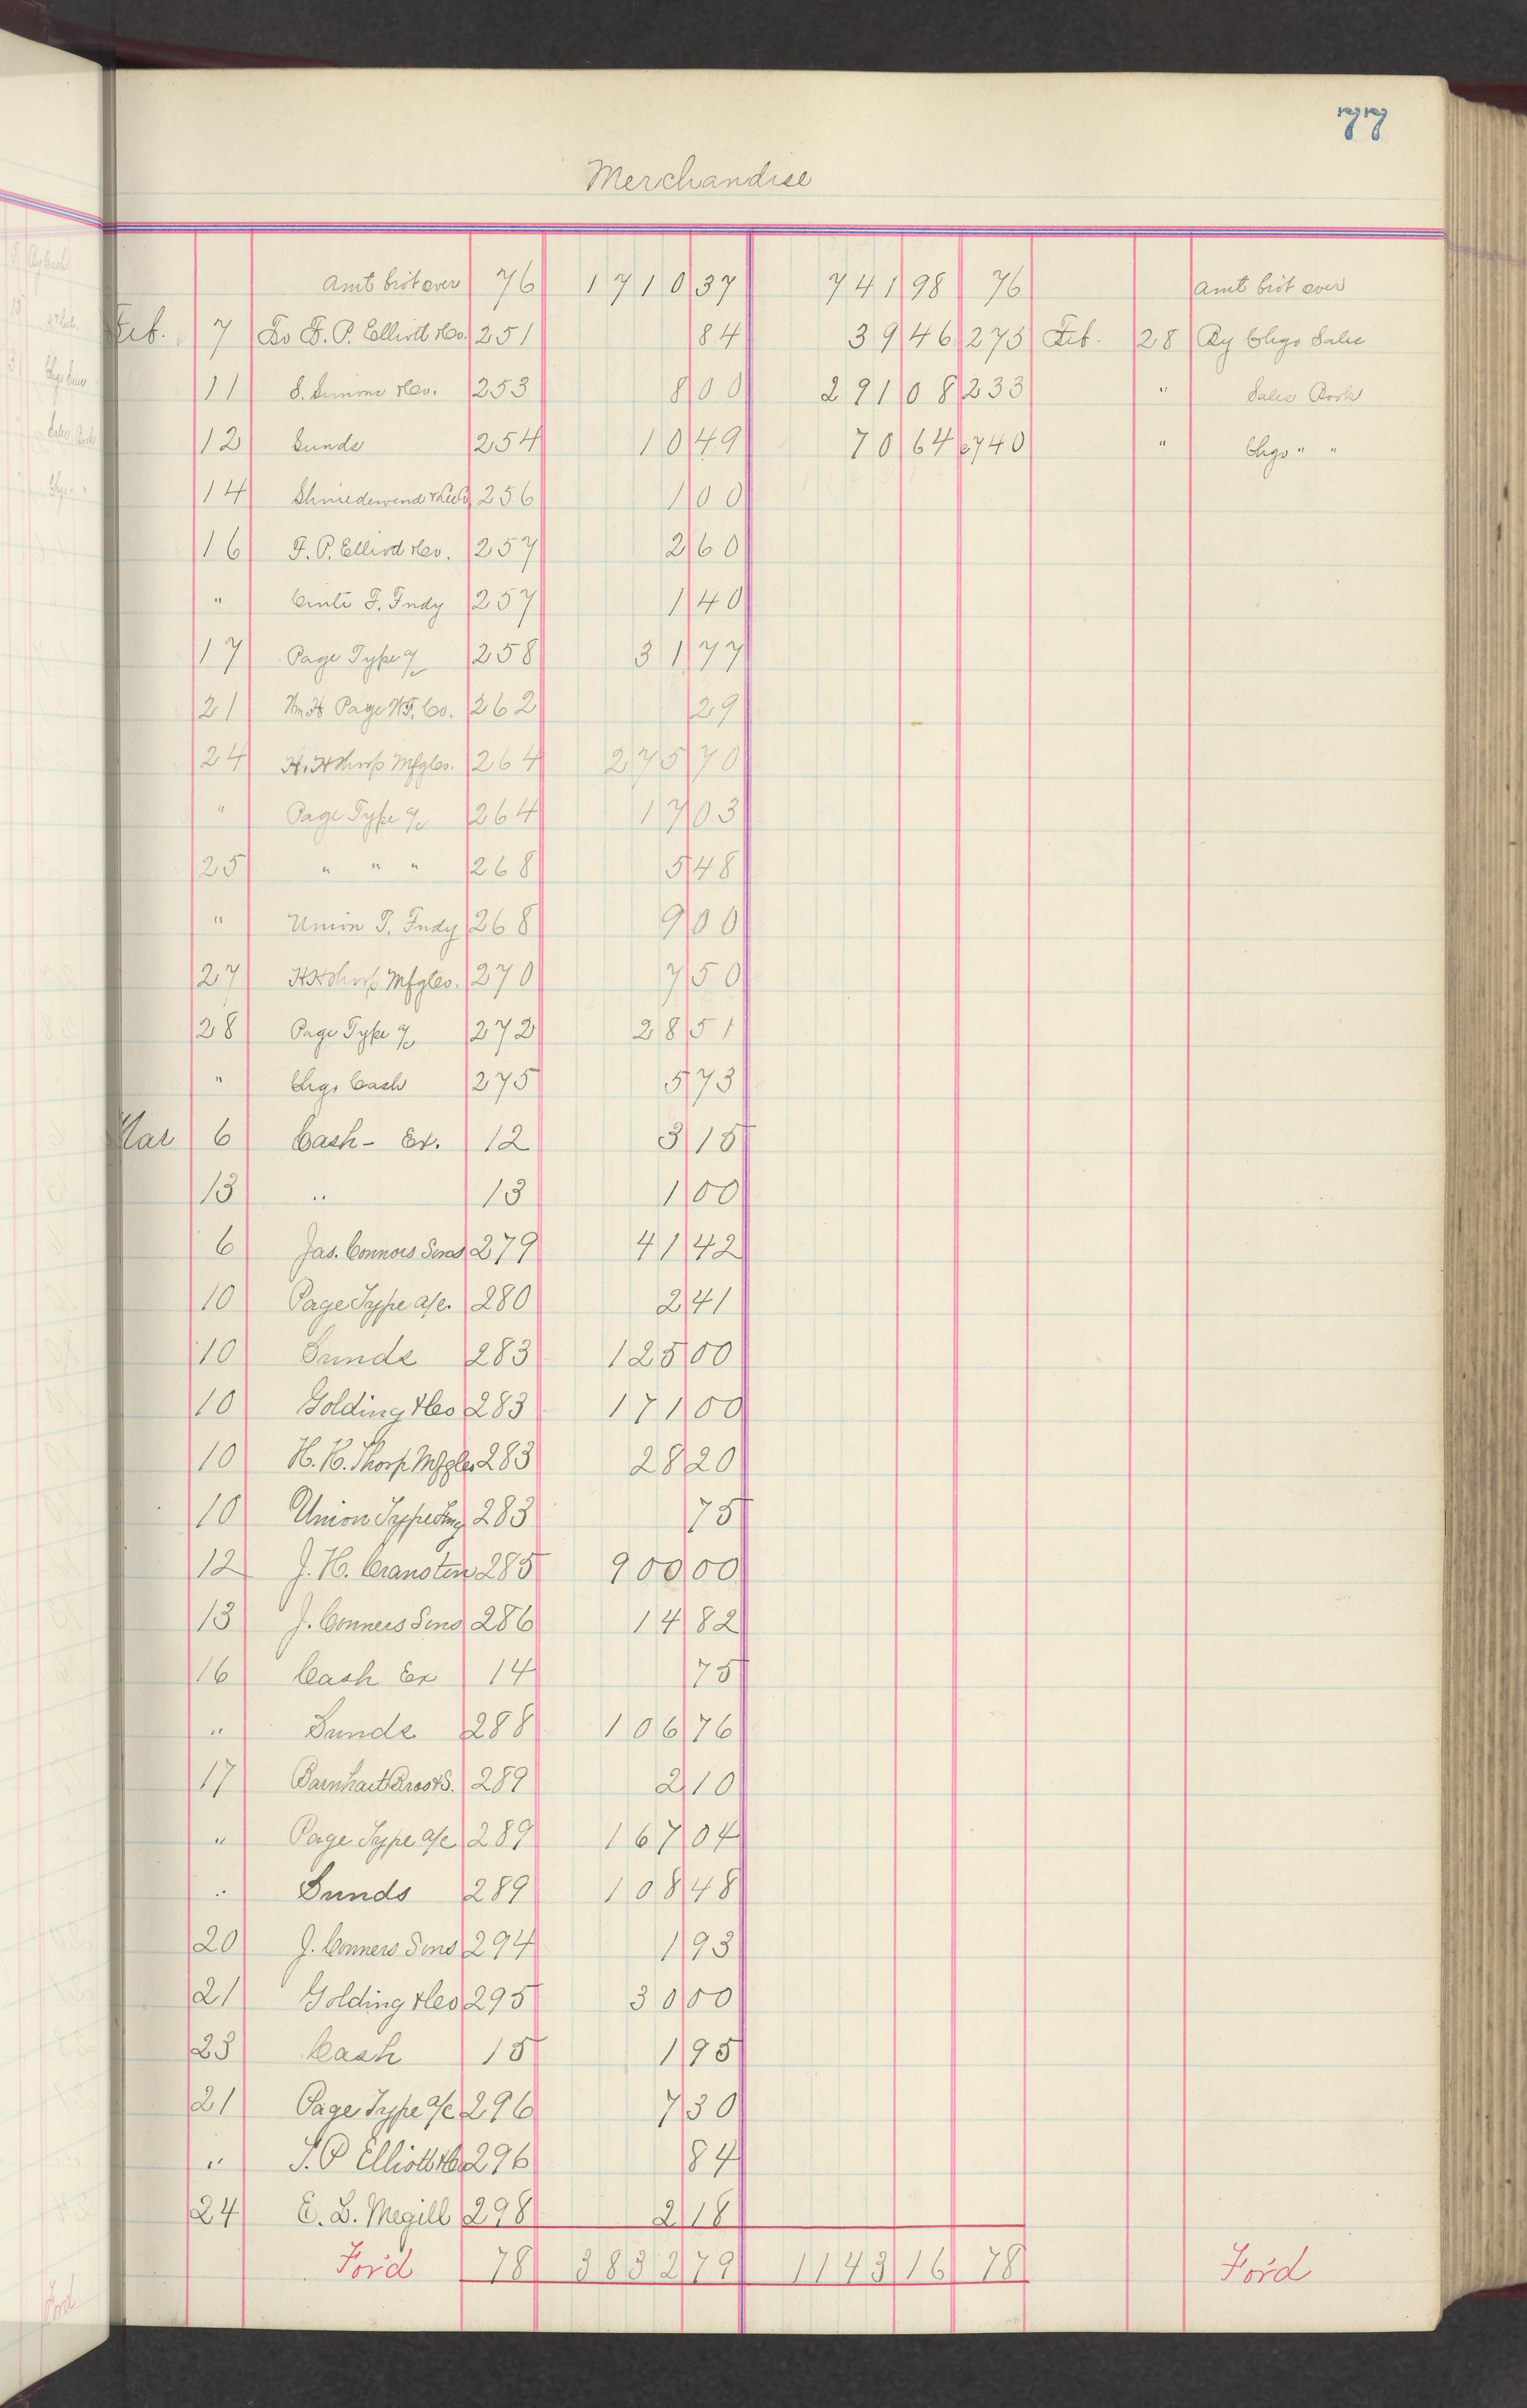 77
Merchandise
Amt brot over 76 1710 37 741 98 76 Amt brot over
Feb. 7 To F. P. Elliott &Co. 251 84 39 46 275 Feb. 28 By Chgo Sales
11 S. Simons &Co. 253 8 00 291 08 233 " Sales Book
12 Sunds 254 10 49 70 64 240 " Chgo " "
14 256 1 00
16 F. P. Elliott &Co. 257 2 60
" F. Fndy 257 1 40
17 Page Type a/c 258 31 77
21 Wm H Page W.T. Co. 262 29
24 H. H Thorp Mfg Co. 264 275 70
" Page Type a/c 264 17 03
25 " " " 268 5 48
" Union T. Fndy 268 9 00
27 H H Thorp Mfg Co. 270 7 50
28 Page Type a/c 272 28 51
" Chgo Cash 275 5 73
Mar 6 Cash - Ex. 12 3 15
13 " 13 1 00
6 Jas. Connors Sons 279 41 42
10 Page Type a/c. 280 2 41
10 Sunds 283 125 00
10 Golding &Co 283 171 00
10 H. H. Thorp Mfg Co 283 28 20
10 Union Type Fdy 283 75
12 J. H. Cransten 285 900 00
13 J. Conners Sons 286 14 82
16 Cash Ex 14 75
" Sunds 288 106 76
17 Barnhart Bros & S. 289 2 10
" Page Type a/c 289 167 04
" Sunds 289 108 48
20 J. Conners Sons 294 1 93
21 Golding &Co 295 30 00
23 Cash 15 1 95
21 Page Type a/c 296 7 30
" F. P Elliott &Co 296 84
24 E. L. Megill 298 2 18
For'd 78 3832 79 1143 16 78 For'd